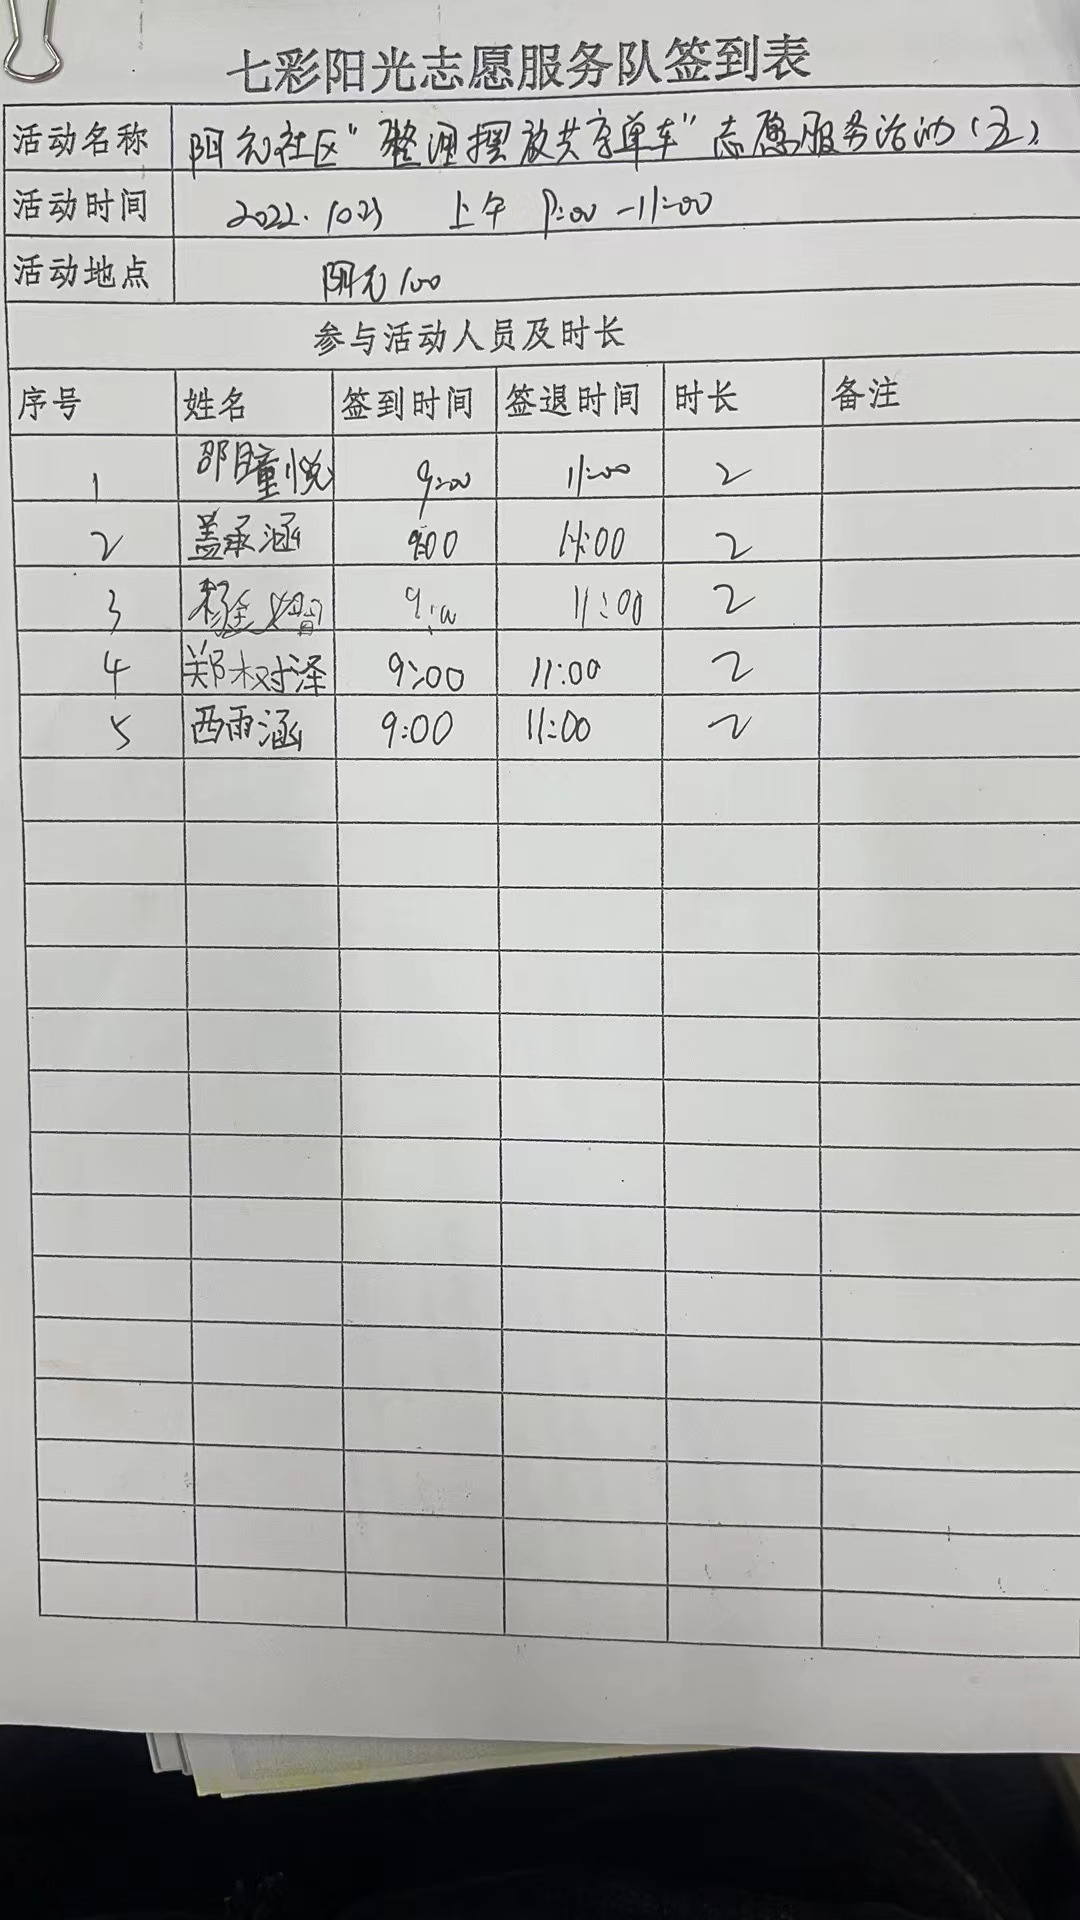 七彩阳光志愿服务队签到表
活动名称 阳光社区"整理摆放共享单车"志愿服务活动(五)
活动时间 2022.1023 上午 9:00-11:00
活动地点 阳光100
参与活动人员及时长
序号 姓名 签到时间 签退时间 时长 备注
1 邵瞳悦 9:00 11:00 2
2 盖承涵 9:00 11:00 2
3 9:00 11:00 2
4 郑树泽 9:00 11:00 2
5 西雨涵 9:00 11:00 2